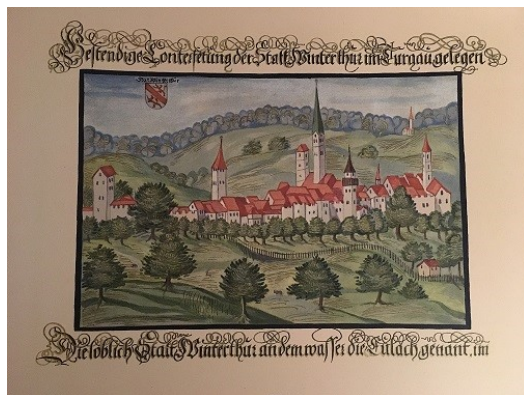 Bestendige Contrefetung der Statt Winterthur im Turgau gelegen
Die loblich Statt Winterthur an dem wasser die Eulach genant, im